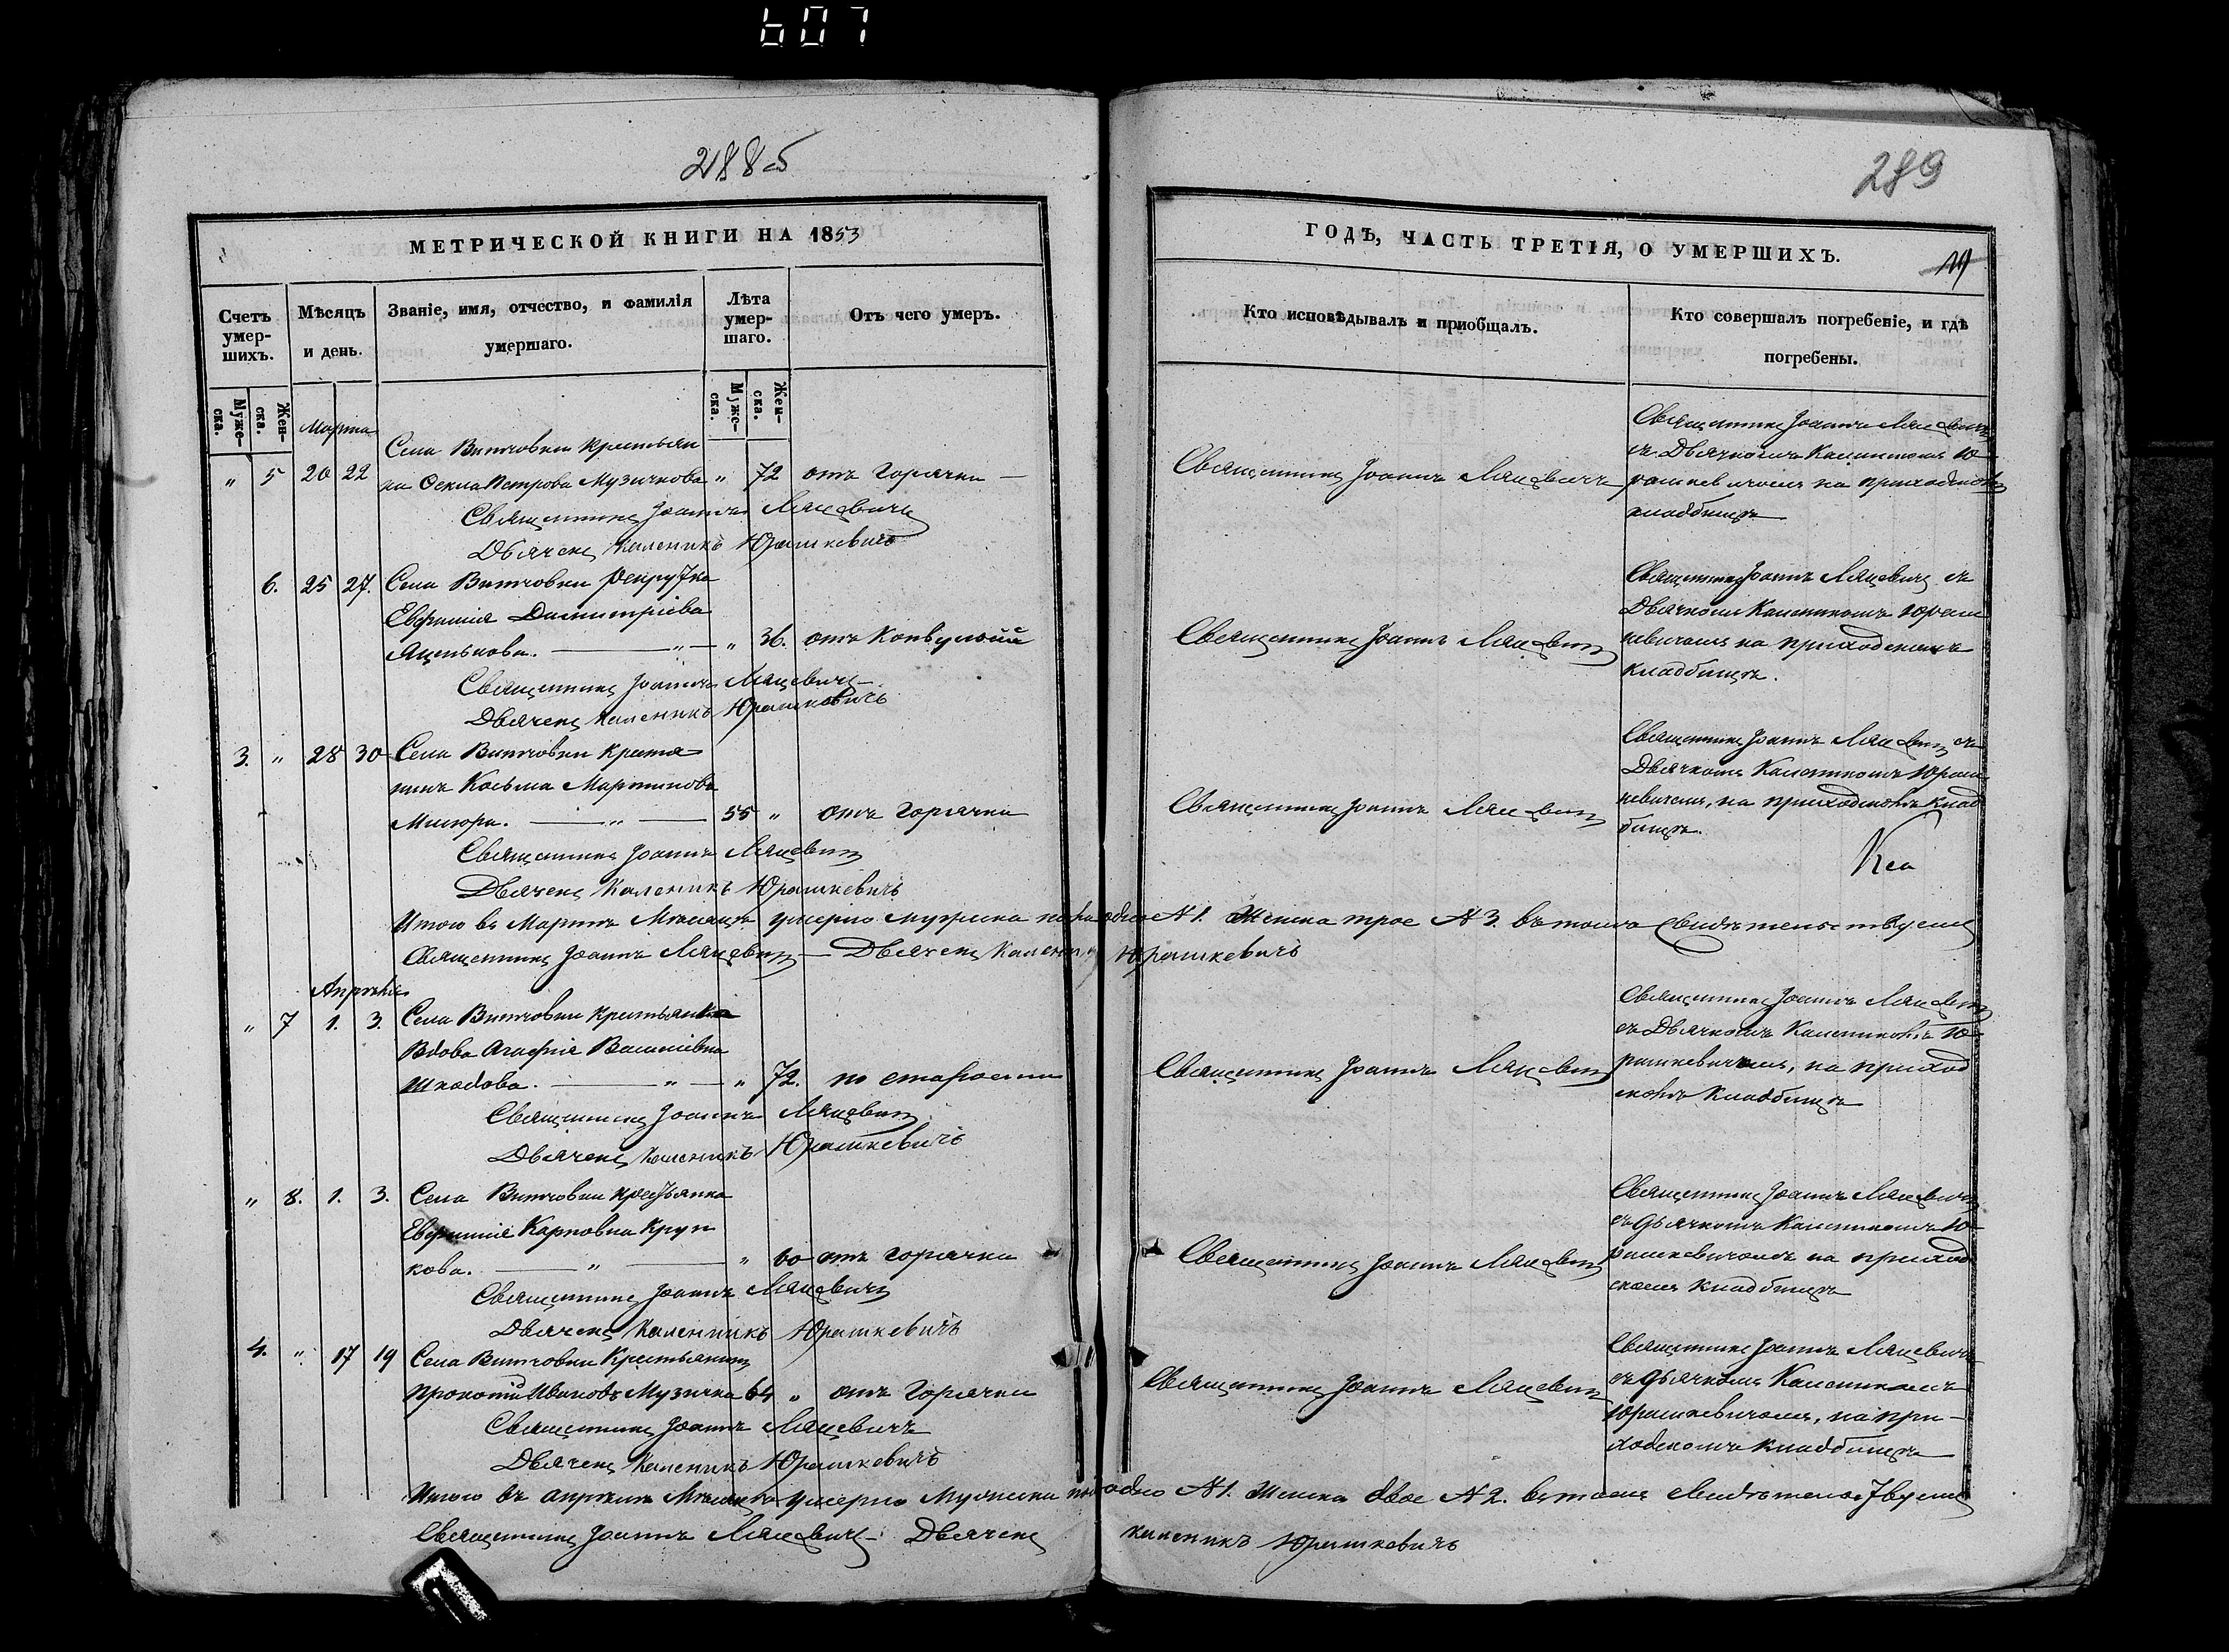 607
288 б
МЕТРИЧЕСКОЙ КНИГИ НА 1853
Счетъ умер-шихъ.
Муже-ска.
Жен-ска.
Мѣсяцъ и день.
Званіе, имя, отчество, и фамилія умершаго.
Лѣта умер-шаго.
Муже-ска.
Жен-ска.
Отъ чего умеръ.
Марта
Села Витчовки Крестьян
" 5 20 22 ка Фекла Петрова Музичкова " 72 отъ горячки —
Священникъ Іоаннъ Ляцевичъ
Дьячекъ Каленикъ Юрашкевичъ
6. 25 27. Села Витчовки рекрутка
Евфимія Димитріева
Яценькова. — " — " 36. отъ Конвульсій
Священникъ Іоаннъ Ляцевичъ
Дьячекъ Каленикъ Юрашкевичъ
3. " 28 30 Села Витчовки Кресть
нинъ Косьма Мартиновъ
Мисюра. — " — 55 " отъ горячки
Священникъ Іоаннъ Ляцевичъ
Дьячекъ Каленикъ Юрашкевичъ
Итого въ Мартѣ Мѣсяцѣ умерло мужеска
Священникъ Іоаннъ Ляцевичъ — Дьячекъ Каленикъ
Апрѣля
" 7 1. 3. Села Витчовки крестьянка
Вдова Агафія Василіевна
Шкодова. — " — " 72. по старости
Священникъ Іоаннъ Ляцевичъ
Дьячекъ Каленикъ Юрашкевичъ
" 8. 1. 3. Села Витчовки крестьянка
Евфимія Карповна Круп
кова. — " — " 60 отъ горячки
Священникъ Іоаннъ Ляцевичъ
Дьячекъ Каленикъ Юрашкевичъ
4. " 17 19 Села Витчовки Крестьянинъ
Прокопій Ивановъ Музичка 64 " отъ горячки
Священникъ Іоаннъ Ляцевичъ
Дьячекъ Каленикъ Юрашкевичъ
Итого въ апрѣлѣ Мѣсяцѣ умерло Мужеска
Священникъ Іоаннъ Ляцевичъ Дьячекъ
289
ГОДѢ, ЧАСТЬ ТРЕТІЯ, О УМЕРШИХЪ.
Кто исповѣдывалъ и пріобщалъ.
Кто совершалъ погребеніе, и гдѣ погребены.
Священникъ Іоаннъ Ляцевичъ
Священникъ Іоаннъ Ляцевичъ
съ Дьячкомъ Каленикомъ Ю
рашкевичемъ на приходскомъ
кладбищѣ
Священникъ Іоаннъ Ляцевичъ
Священникъ Іоаннъ Ляцевичъ съ
Дьячкомъ Каленикомъ Юраш
кевичемъ на приходскомъ
кладбищѣ.
Священникъ Іоаннъ Ляцевичъ
Священникъ Іоаннъ Ляцевичъ съ
Дьячкомъ Каленикомъ Юраш
кевичемъ, на приходскомъ клад
бищѣ.
№ 1. Женска трое № 3. въ томъ свидѣтельствуемъ
Юрашкевичъ
Священникъ Іоаннъ Ляцевичъ
Священникъ Іоаннъ Ляцевичъ
съ Дьячкомъ Каленикомъ Ю-
рашкевичемъ, на приход
скомъ кладбищѣ
Священникъ Іоаннъ Ляцевичъ
Священникъ Іоаннъ Ляцевичъ
съ дьячкомъ Каленикомъ Ю-
рашкевичемъ на приход
скомъ кладбищѣ
Священникъ Іоаннъ Ляцевичъ
Священникъ Іоаннъ Ляцевичъ
съ дьячкомъ Каленикомъ
Юрашкевичемъ, на при-
ходскомъ кладбищѣ
№ 1. Женска двое № 2. въ томъ свидѣтельствуемъ
Каленикъ Юрашкевичъ